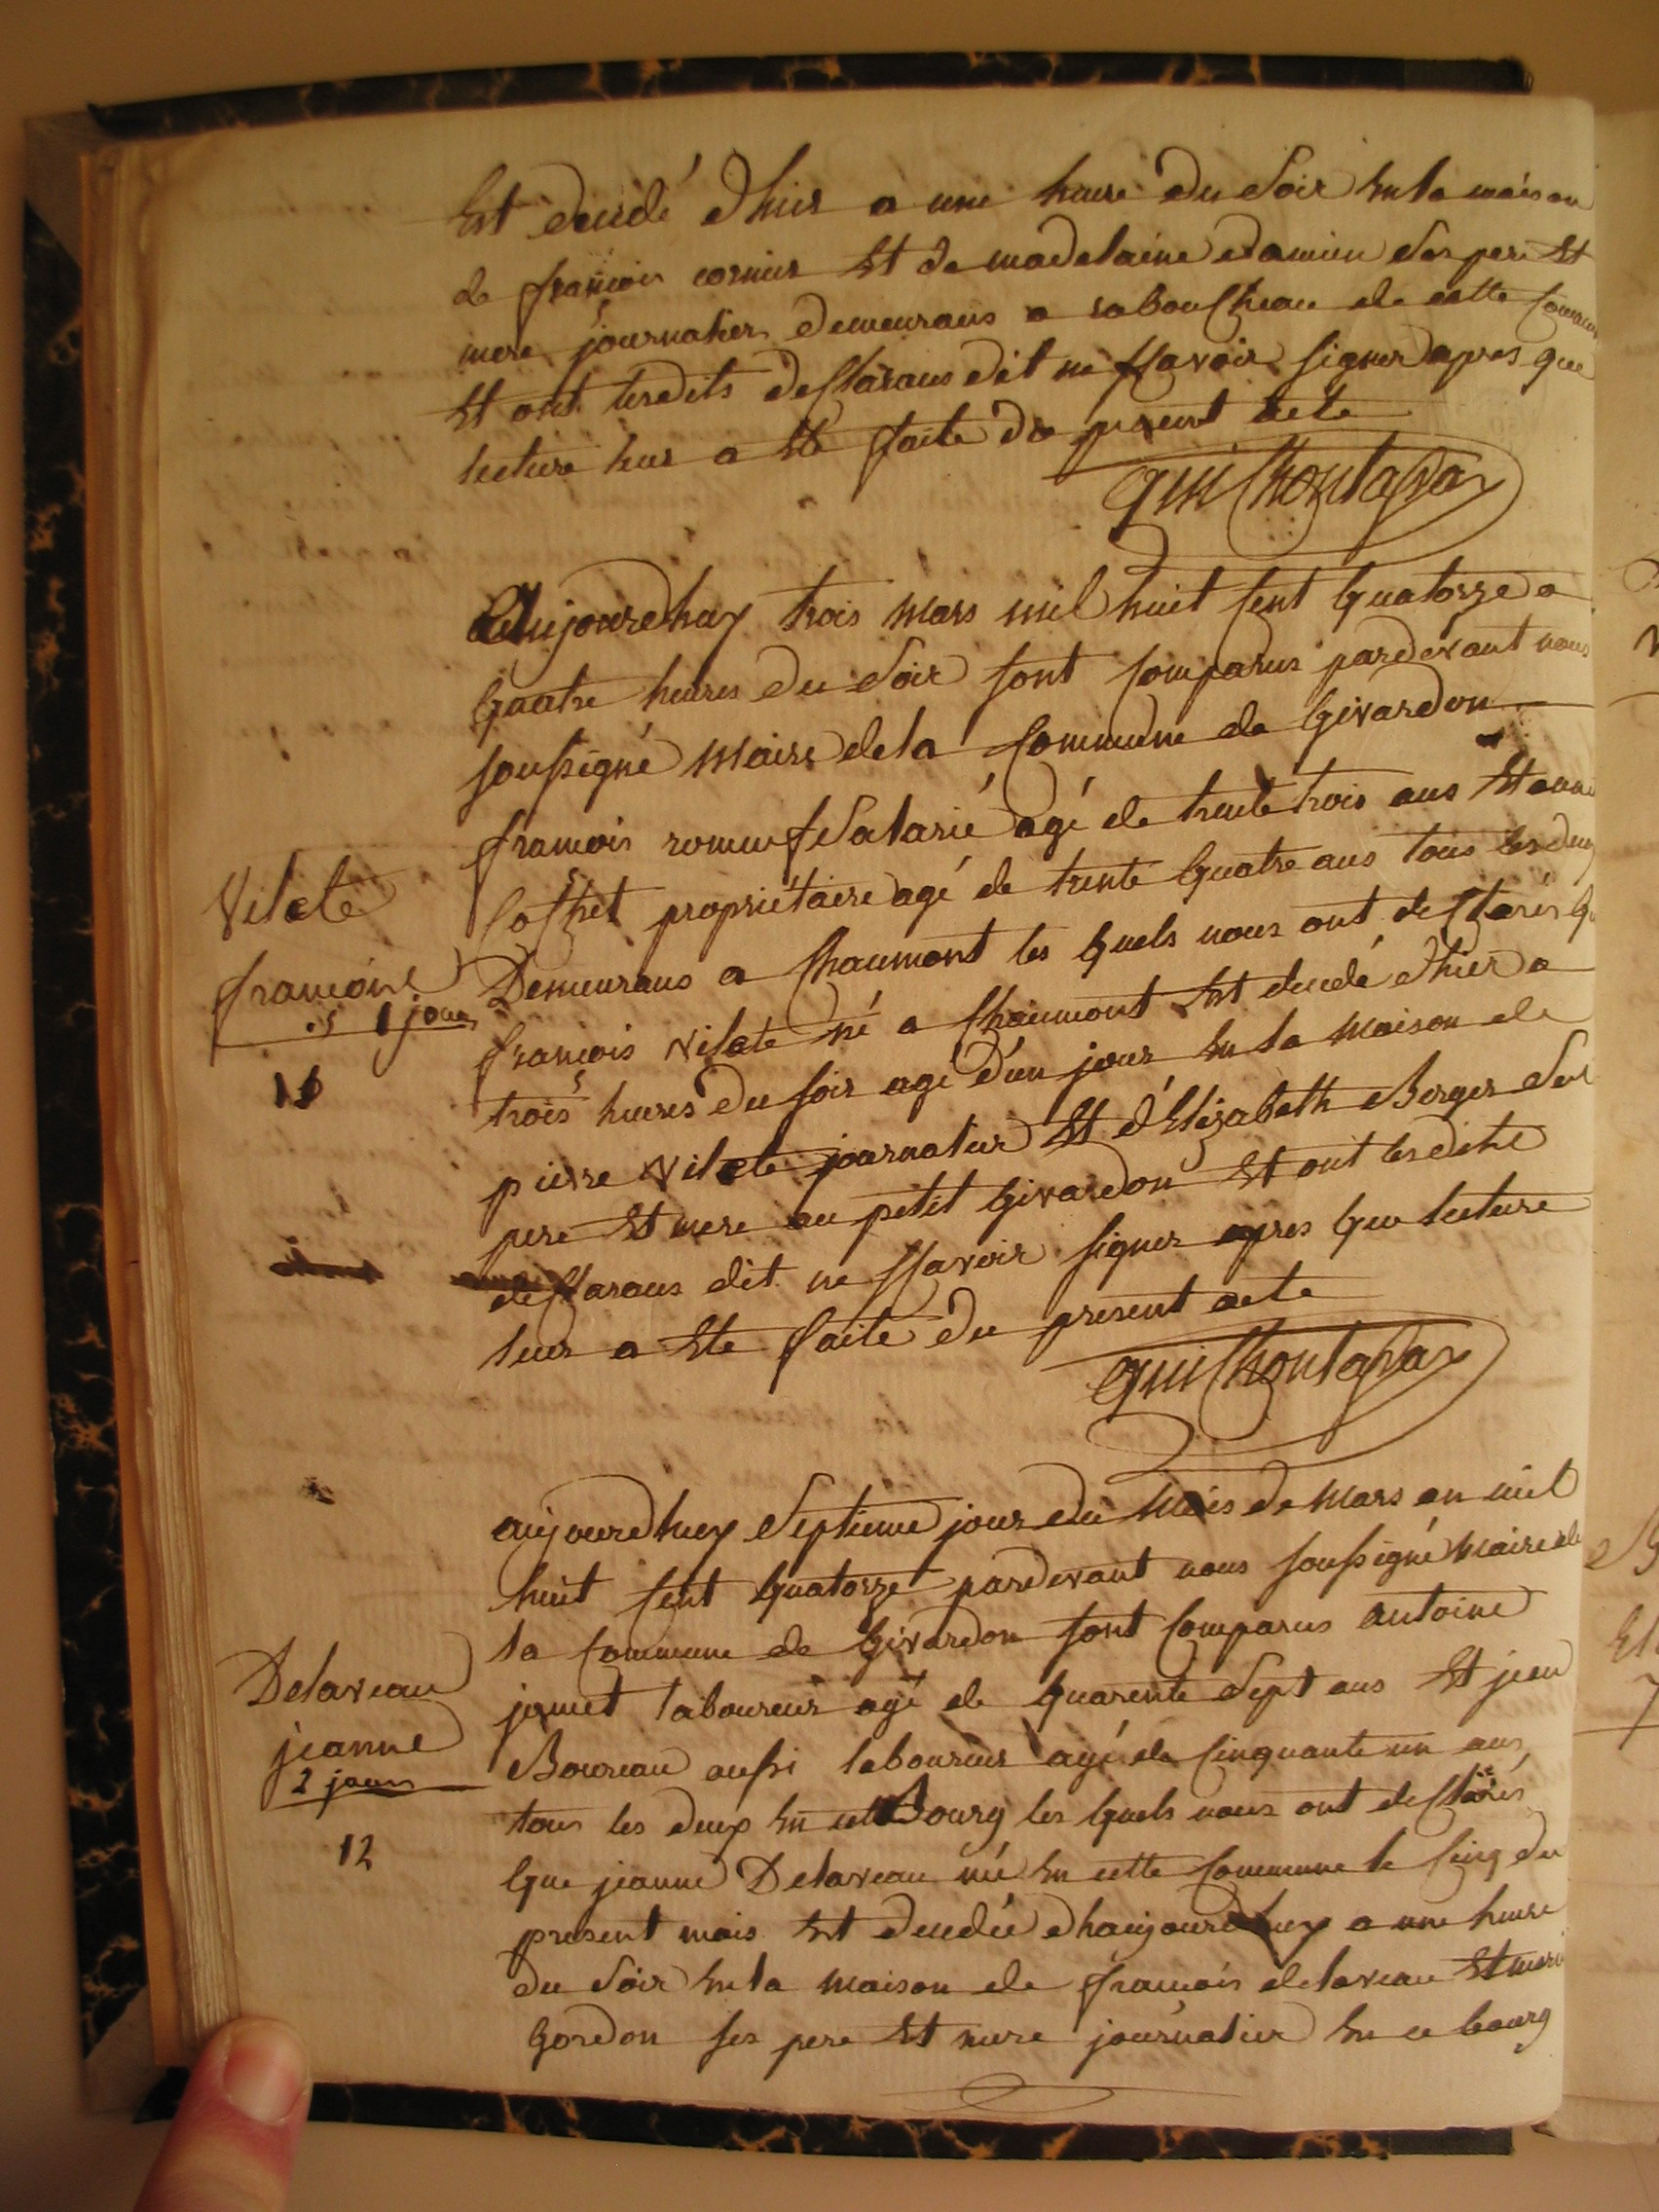 Est decedé d'hier a une heure du soir En la maison
de françois cornier Et de madelaine damien ses pere Et
mere journalier demeurans a de cette
Et ont lesdits desclarans dit ne sçavoir signer apres que
lecture leur a Eté faite du present acte
Aujourdhuy trois mars mil huit cent quatorze a
quatre heures du soir sont comparus pardevant nous
soussigné maire de la commune de Givardon
françois romeuf salarié agé de trente trois ans Et
propriétaire agé de trente quatre ans tous les deux
Demeurans a Chaumont les quels nous ont desclarés
françois Vilate né a Chaumont Est decedé d'hier a
trois heures du soir agé d'un jour En la maison de
pierre Vilate journalier Et d'Elizabeth Berger ses
pere Et mere au petit Givardon Et ont lesdits
desclarans dit ne sçavoir signer apres que lecture
leur a Eté faite du present acte
Vilate
françois
1 jour
aujourdhuy septieme jour du mois de mars en mil
huit cent quatorze pardevant nous soussigné maire de
la commune de Givardon sont comparus antoine
jamet laboureur agé de quarente sept ans Et jean
Boureau aussi laboureur agé de cinquante un ans
tous les deux En Bourg les quels nous ont desclarés
que jeanne Delaveau née En cette commune le cinq du
present mois Est decedée dhaujourdhuy a une heure
du soir En la maison de françois delaveau Et
Gordon ses pere Et mere journalier En ce bourg
Delaveau
jeanne
2 jours
12